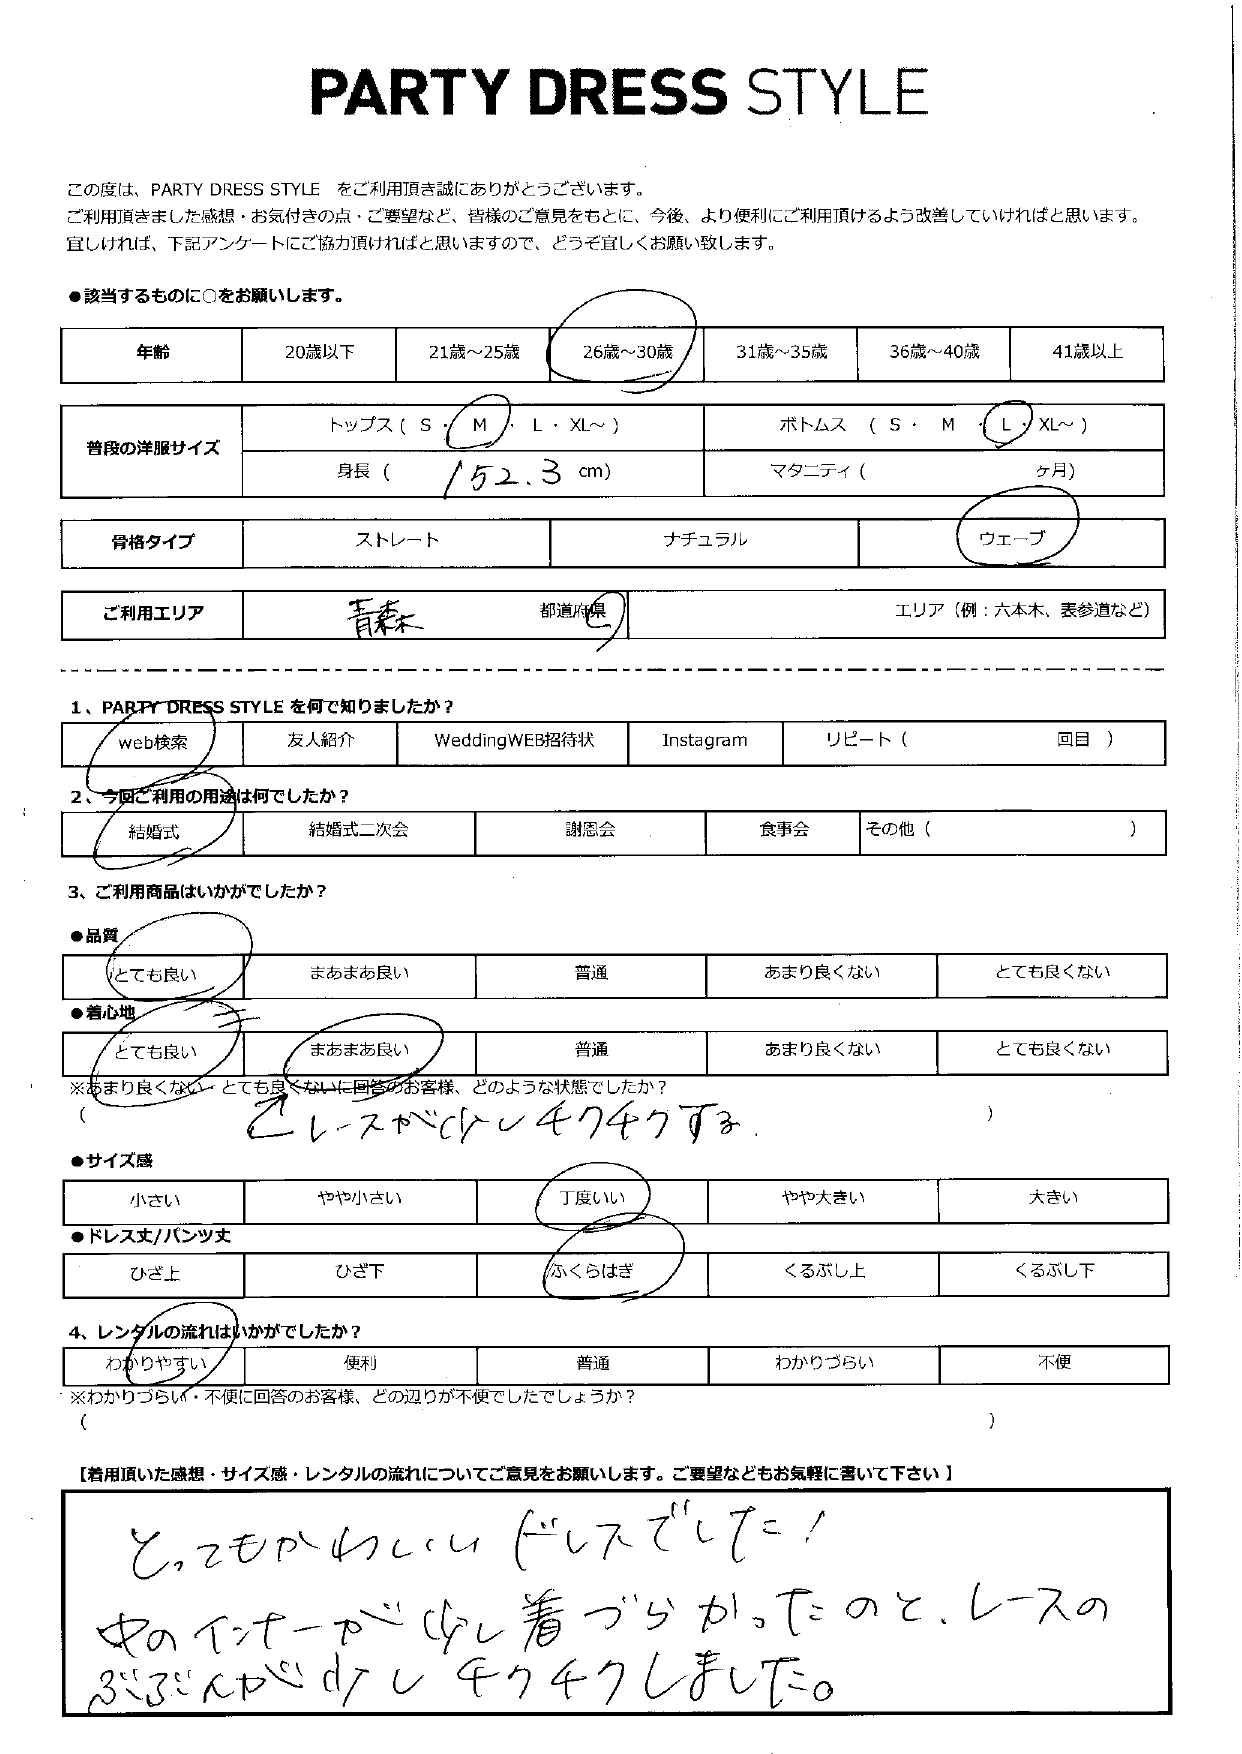 PARTY DRESS STYLE
この度は、PARTY DRESS STYLE をご利用頂き誠にありがとうございます。
ご利用頂きました感想・お気付きの点・ご要望など、皆様のご意見をもとに、今後、より便利にご利用頂けるよう改善していければと思います。
宜しければ、下記アンケートにご協力頂ければと思いますので、どうぞ宜しくお願い致します。
●該当するものに○をお願いします。
年齢 20歳以下 21歳～25歳 26歳～30歳 31歳～35歳 36歳～40歳 41歳以上
普段の洋服サイズ トップス ( S ・ M ・ L ・ XL～ ) ボトムス ( S ・ M ・ L ・ XL～ )
身長 ( 152.3 cm) マタニティ ( ヶ月)
骨格タイプ ストレート ナチュラル ウェーブ
ご利用エリア 青森 都道府県 エリア（例：六本木、表参道など）
1、PARTY DRESS STYLE を何で知りましたか？
web検索 友人紹介 WeddingWEB招待状 Instagram リピート ( 回目 )
2、今回ご利用の用途は何でしたか？
結婚式 結婚式二次会 謝恩会 食事会 その他 ( )
3、ご利用商品はいかがでしたか？
●品質
とても良い まあまあ良い 普通 あまり良くない とても良くない
●着心地
とても良い まあまあ良い 普通 あまり良くない とても良くない
※あまり良くない・とても良くないに回答のお客様、どのような状態でしたか？
( レースが少しチクチクする. )
●サイズ感
小さい やや小さい 丁度いい やや大きい 大きい
●ドレス丈/パンツ丈
ひざ上 ひざ下 ふくらはぎ くるぶし上 くるぶし下
4、レンタルの流れはいかがでしたか？
わかりやすい 便利 普通 わかりづらい 不便
※わかりづらい・不便に回答のお客様、どの辺りが不便でしたでしょうか？
( )
【着用頂いた感想・サイズ感・レンタルの流れについてご意見をお願いします。ご要望などもお気軽に書いて下さい 】
とってもかわいい ドレスでした！
中のインナーが少し着づらかったのと、レースの
ぶぶんが少し チクチクしました。